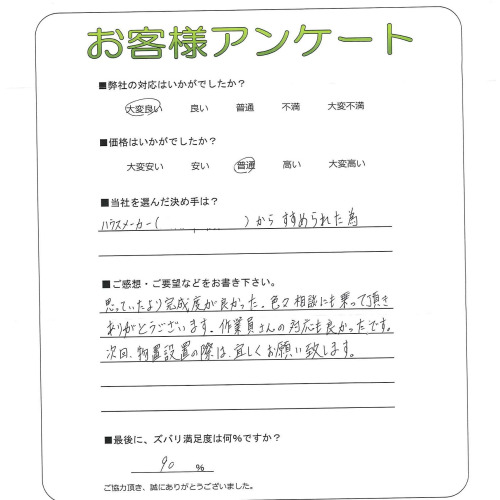 お客様アンケート
■弊社の対応はいかがでしたか？
大変良い 良い 普通 不満 大変不満
■価格はいかがでしたか？
大変安い 安い 普通 高い 大変高い
■当社を選んだ決め手は？
ハウスメーカー( )からすすめられた為
■ご感想・ご要望などをお書き下さい。
思っていたより完成度が良かった。色々相談にも乗って頂き
ありがとうございます。作業員さんの対応も良かったです。
次回、物置設置の際は、宜しくお願い致します。
■最後に、ズバリ満足度は何％ですか？
90 %
ご協力頂き、誠にありがとうございました。